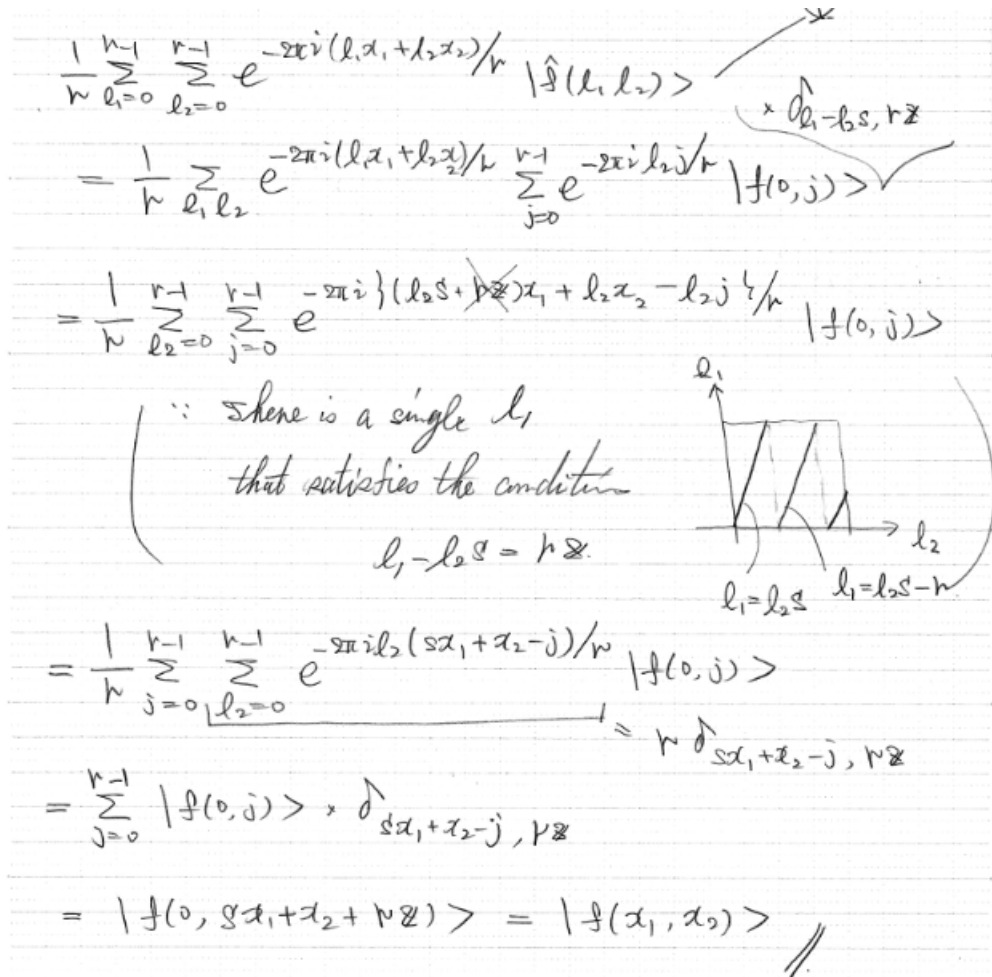 \frac{1}{r} \sum_{l_1=0}^{r-1} \sum_{l_2=0}^{r-1} e^{-2πi(l_1x_1+l_2x_2)/r} |\hat{f}(l_1 l_2)>
× δ_{l_1-l_2s, rℤ}
= \frac{1}{r} \sum_{l_1 l_2} e^{-2πi(l_1x_1+l_2x_2)/r} \sum_{j=0}^{r-1} e^{-2πi l_2j/r} |f(0,j)>
= \frac{1}{r} \sum_{l_2=0}^{r-1} \sum_{j=0}^{r-1} e^{-2πi{(l_2s+rℤ)x_1+l_2x_2-l_2j}/r} |f(0,j)>
∵ There is a single l_1
that satisfies the condition
l_1-l_2s = rℤ.
l_1
l_2
l_1=l_2s
l_1=l_2s-r
= \frac{1}{r} \sum_{j=0}^{r-1} \sum_{l_2=0}^{r-1} e^{-2πil_2(sx_1+x_2-j)/r} |f(0,j)>
= r δ_{sx_1+x_2-j, rℤ}
= \sum_{j=0}^{r-1} |f(0,j)> × δ_{sx_1+x_2-j, rℤ}
= |f(0, sx_1+x_2+rℤ)> = |f(x_1,x_2)>